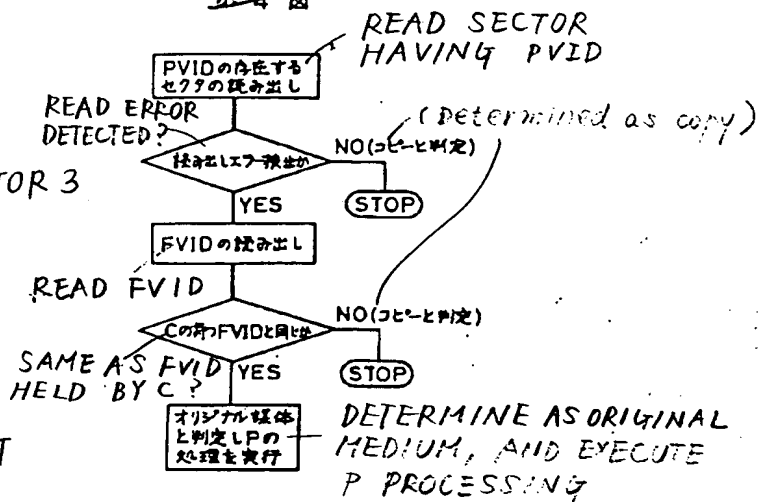 第4図
READ SECTOR
HAVING PVID
PVIDの存在する
セクタの読み出し
READ ERROR
DETECTED?
(Determined as copy)
読み出しエラー検出か
NO(コピーと判定)
TOR 3
YES
STOP
FVIDの読み出し
READ FVID
NO(コピーと判定)
Cの持つFVIDと同じか
SAME AS FVID
HELD BY C?
YES
STOP
オリジナル媒体
と判定しPの
処理を実行
DETERMINE AS ORIGINAL
MEDIUM, AND EXECUTE
P PROCESSING
T